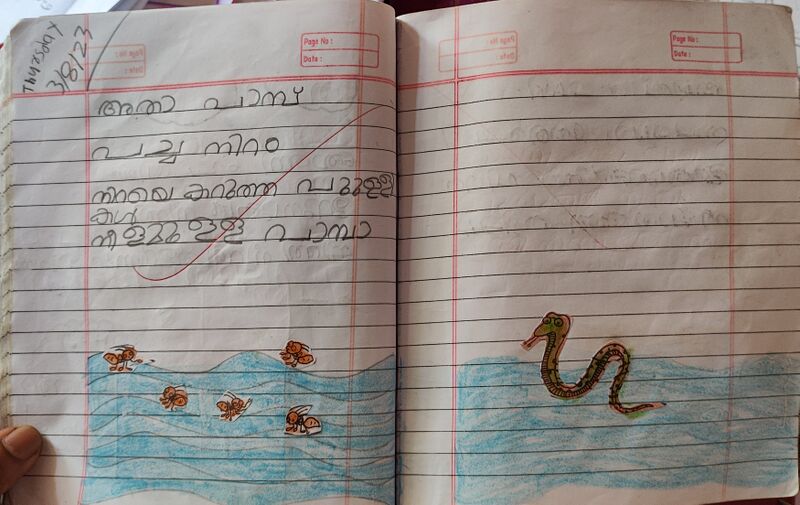 Thursday
3/8/23
Page No :
Date :
Page No :
Date :
അതാ പാമ്പ്
പച്ച നിറം
നിറയെ കറുത്ത പുള്ളി
കൾ
നീളമുള്ള പാമ്പാ